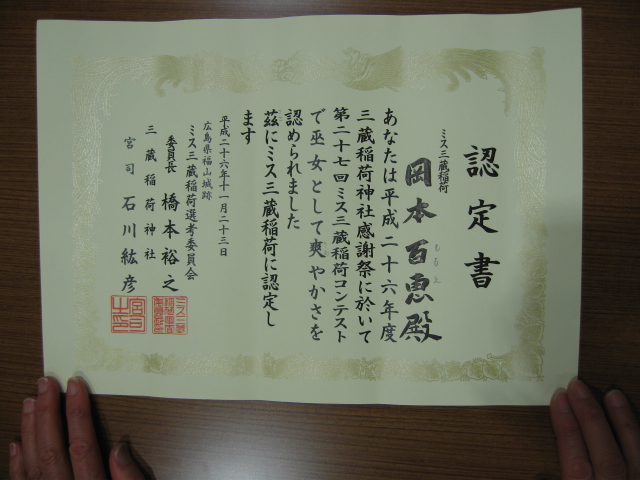 認定書
ミス三蔵稲荷
岡本百恵殿
ももえ
あなたは平成二十六年度
三蔵稲荷神社感謝祭に於いて
第二十七回ミス三蔵稲荷コンテスト
で巫女として爽やかさを
認められました
茲にミス三蔵稲荷に認定し
ます
平成二十六年十一月二十三日
広島県福山城跡
ミス三蔵稲荷選考委員会
委員長 橋本裕之
三蔵稲荷神社
宮司 石川紘彦